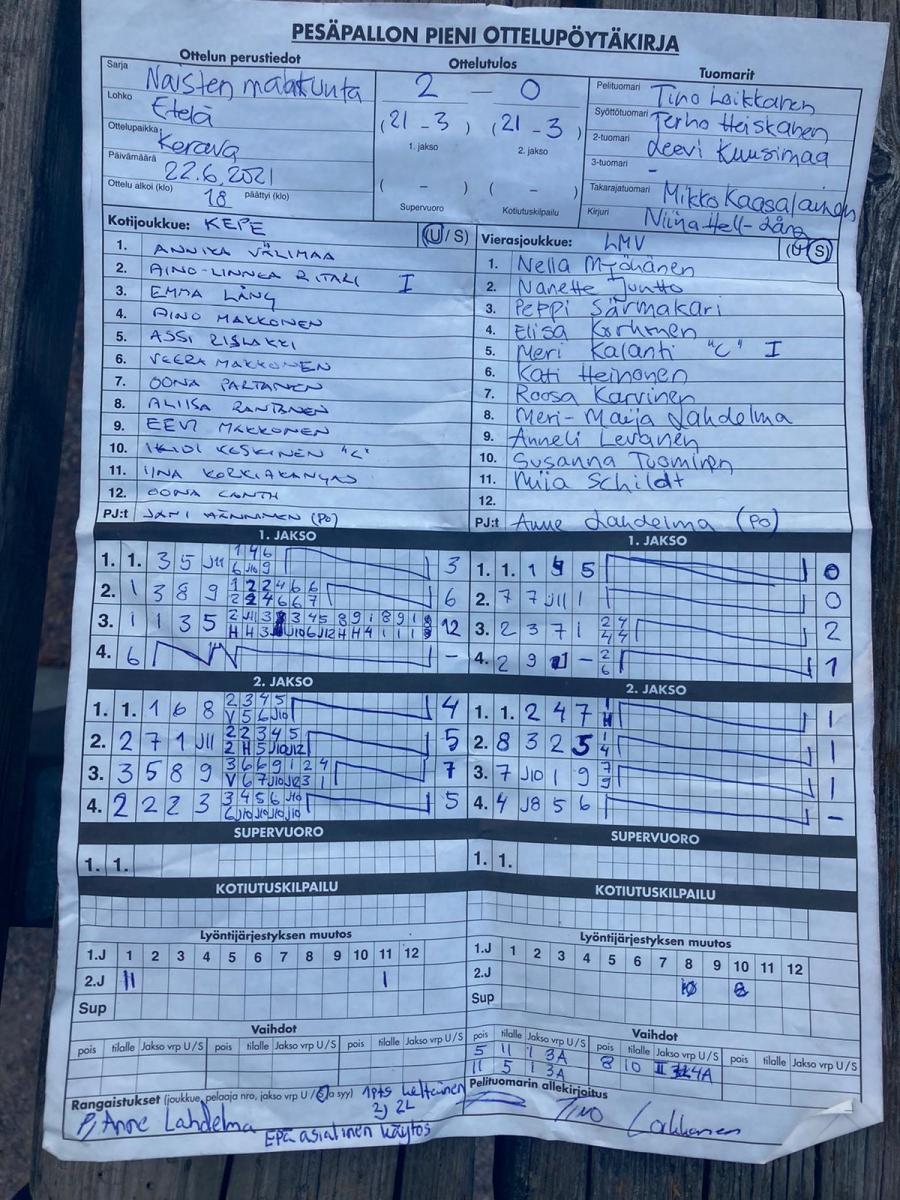 PESÄPALLON PIENI OTTELUPÖYTÄKIRJA
Ottelun perustiedot
Ottelutulos
Tuomarit
Sarja Naisten maakunta
Lohko Etelä
Ottelupaikka Kerava
Päivämäärä 22.6.2021
Ottelu alkoi (klo) 18 päättyi (klo)
2 – 0
(21 - 3) (21 - 3)
1. jakso 2. jakso
( - ) ( - )
Supervuoro Kotiutuskilpailu
Pelituomari Tino Loikkanen
Syöttötuomari Terho Heiskanen
2-tuomari Leevi Kuusimaa
3-tuomari -
Takarajatuomari Mikko Kaasalainen
Kirjuri Niina Hell-Lång
Kotijoukkue: KEPE (U / S)
1. ANNIKA VÄLIMAA
2. AINO-LINNEA RITARI I
3. EMMA LÅNG
4. AINO MAKKONEN
5. ASSI RISLAKKI
6. VEERA MAKKONEN
7. OONA PARTANEN
8. ALIISA RANTANEN
9. EEVI MAKKONEN
10. KESKINEN "C"
11. IINA KORKIAKANGAS
12. OONA CANTH
PJ:t JANI HÄNNINEN (PO)
Vierasjoukkue: LMV (U / S)
1. Nella Myöhänen
2. Nanette Juntto
3. Peppi Särmäkari
4. Elisa Korhonen
5. Meri Kalanti "C" I
6. Kati Heinonen
7. Roosa Karvinen
8. Meri-Maija Lahdelma
9. Anneli Levänen
10. Susanna Tuominen
11. Miia Schildt
12.
PJ:t Anne Lahdelma (PO)
1. JAKSO
1. 1. 3 5 J11 1 4 6 3
6 J10 9
2. 1 3 8 9 1 2 2 4 6 6 6
2 2 4 6 6 7
3. 1 1 3 5 12
4. 6 -
1. JAKSO
1. 1. 1 5 0
2. 7 7 J11 1 0
3. 2 3 7 1 2 4 2
4 4
4. 2 9 - 2 1
6
2. JAKSO
1. 1. 1 6 8 2 3 4 5 4
V 5 6 J10
2. 2 7 1 J11 2 2 3 4 5 5
2 H 5 J10 J12
3. 3 5 8 9 3 6 6 9 1 2 4 7
V 6 7 J10 J12 3 1
4. 2 2 2 3 3 4 5 6 J10 5
6 J10 J10 J10 J10
2. JAKSO
1. 1. 2 4 7 1 1
H
2. 8 3 2 5 1 1
4
3. 7 J10 1 9 7 1
9
4. 4 J8 5 6 -
SUPERVUORO
1. 1.
SUPERVUORO
1. 1.
KOTIUTUSKILPAILU
KOTIUTUSKILPAILU
Lyöntijärjestyksen muutos
1.J 1 2 3 4 5 6 7 8 9 10 11 12
2.J 11 1
Sup
Lyöntijärjestyksen muutos
1.J 1 2 3 4 5 6 7 8 9 10 11 12
2.J 10 8
Sup
Vaihdot
pois tilalle Jakso vrp U / S pois tilalle Jakso vrp U / S pois tilalle Jakso vrp U / S
Vaihdot
pois tilalle Jakso vrp U / S pois tilalle Jakso vrp U / S pois tilalle Jakso vrp U / S
5 11 1 3A 8 10 II 4A
11 5 1 3A
Rangaistukset (joukkue, pelaaja nro, jakso vrp U / S ja syy) 1pts keltainen
PJ Anne Lahdelma 2J 2L
Epäasiallinen käytös
Pelituomarin allekirjoitus
Tino Loikkanen